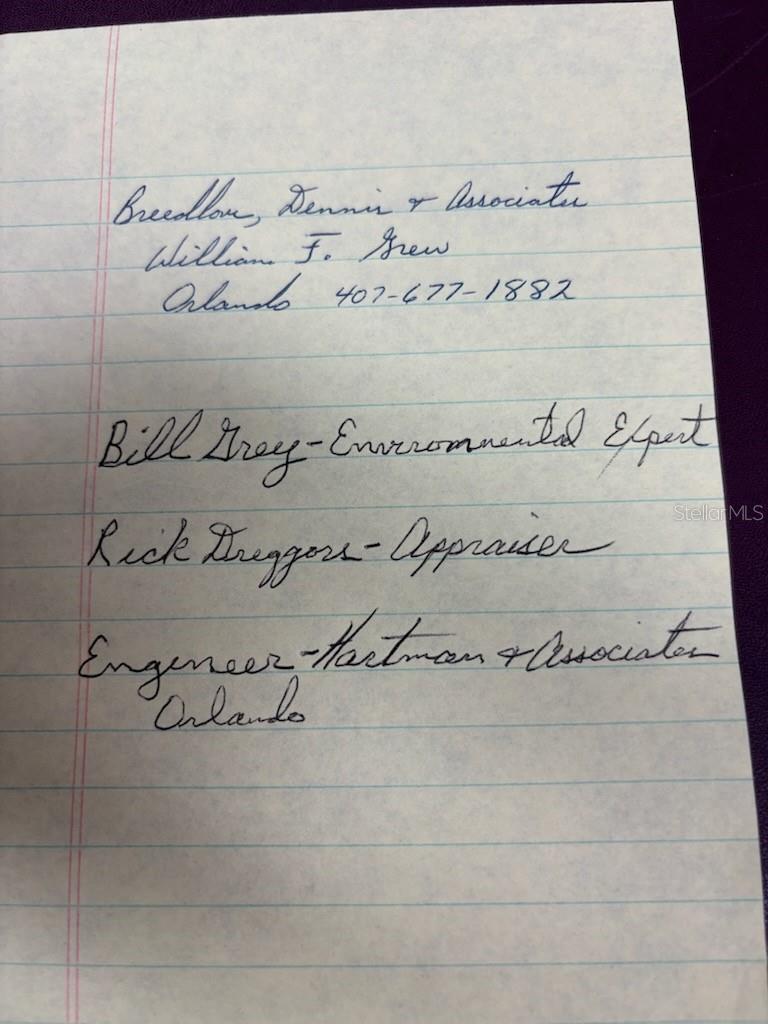 Breedlove, Dennis & Associates
William F. Grew
Orlando 407-677-1882
Bill Grey - Environmental Expert
Rick Dreggors - Appraiser
Engineer - Hartman & Associates
Orlando
StellarMLS